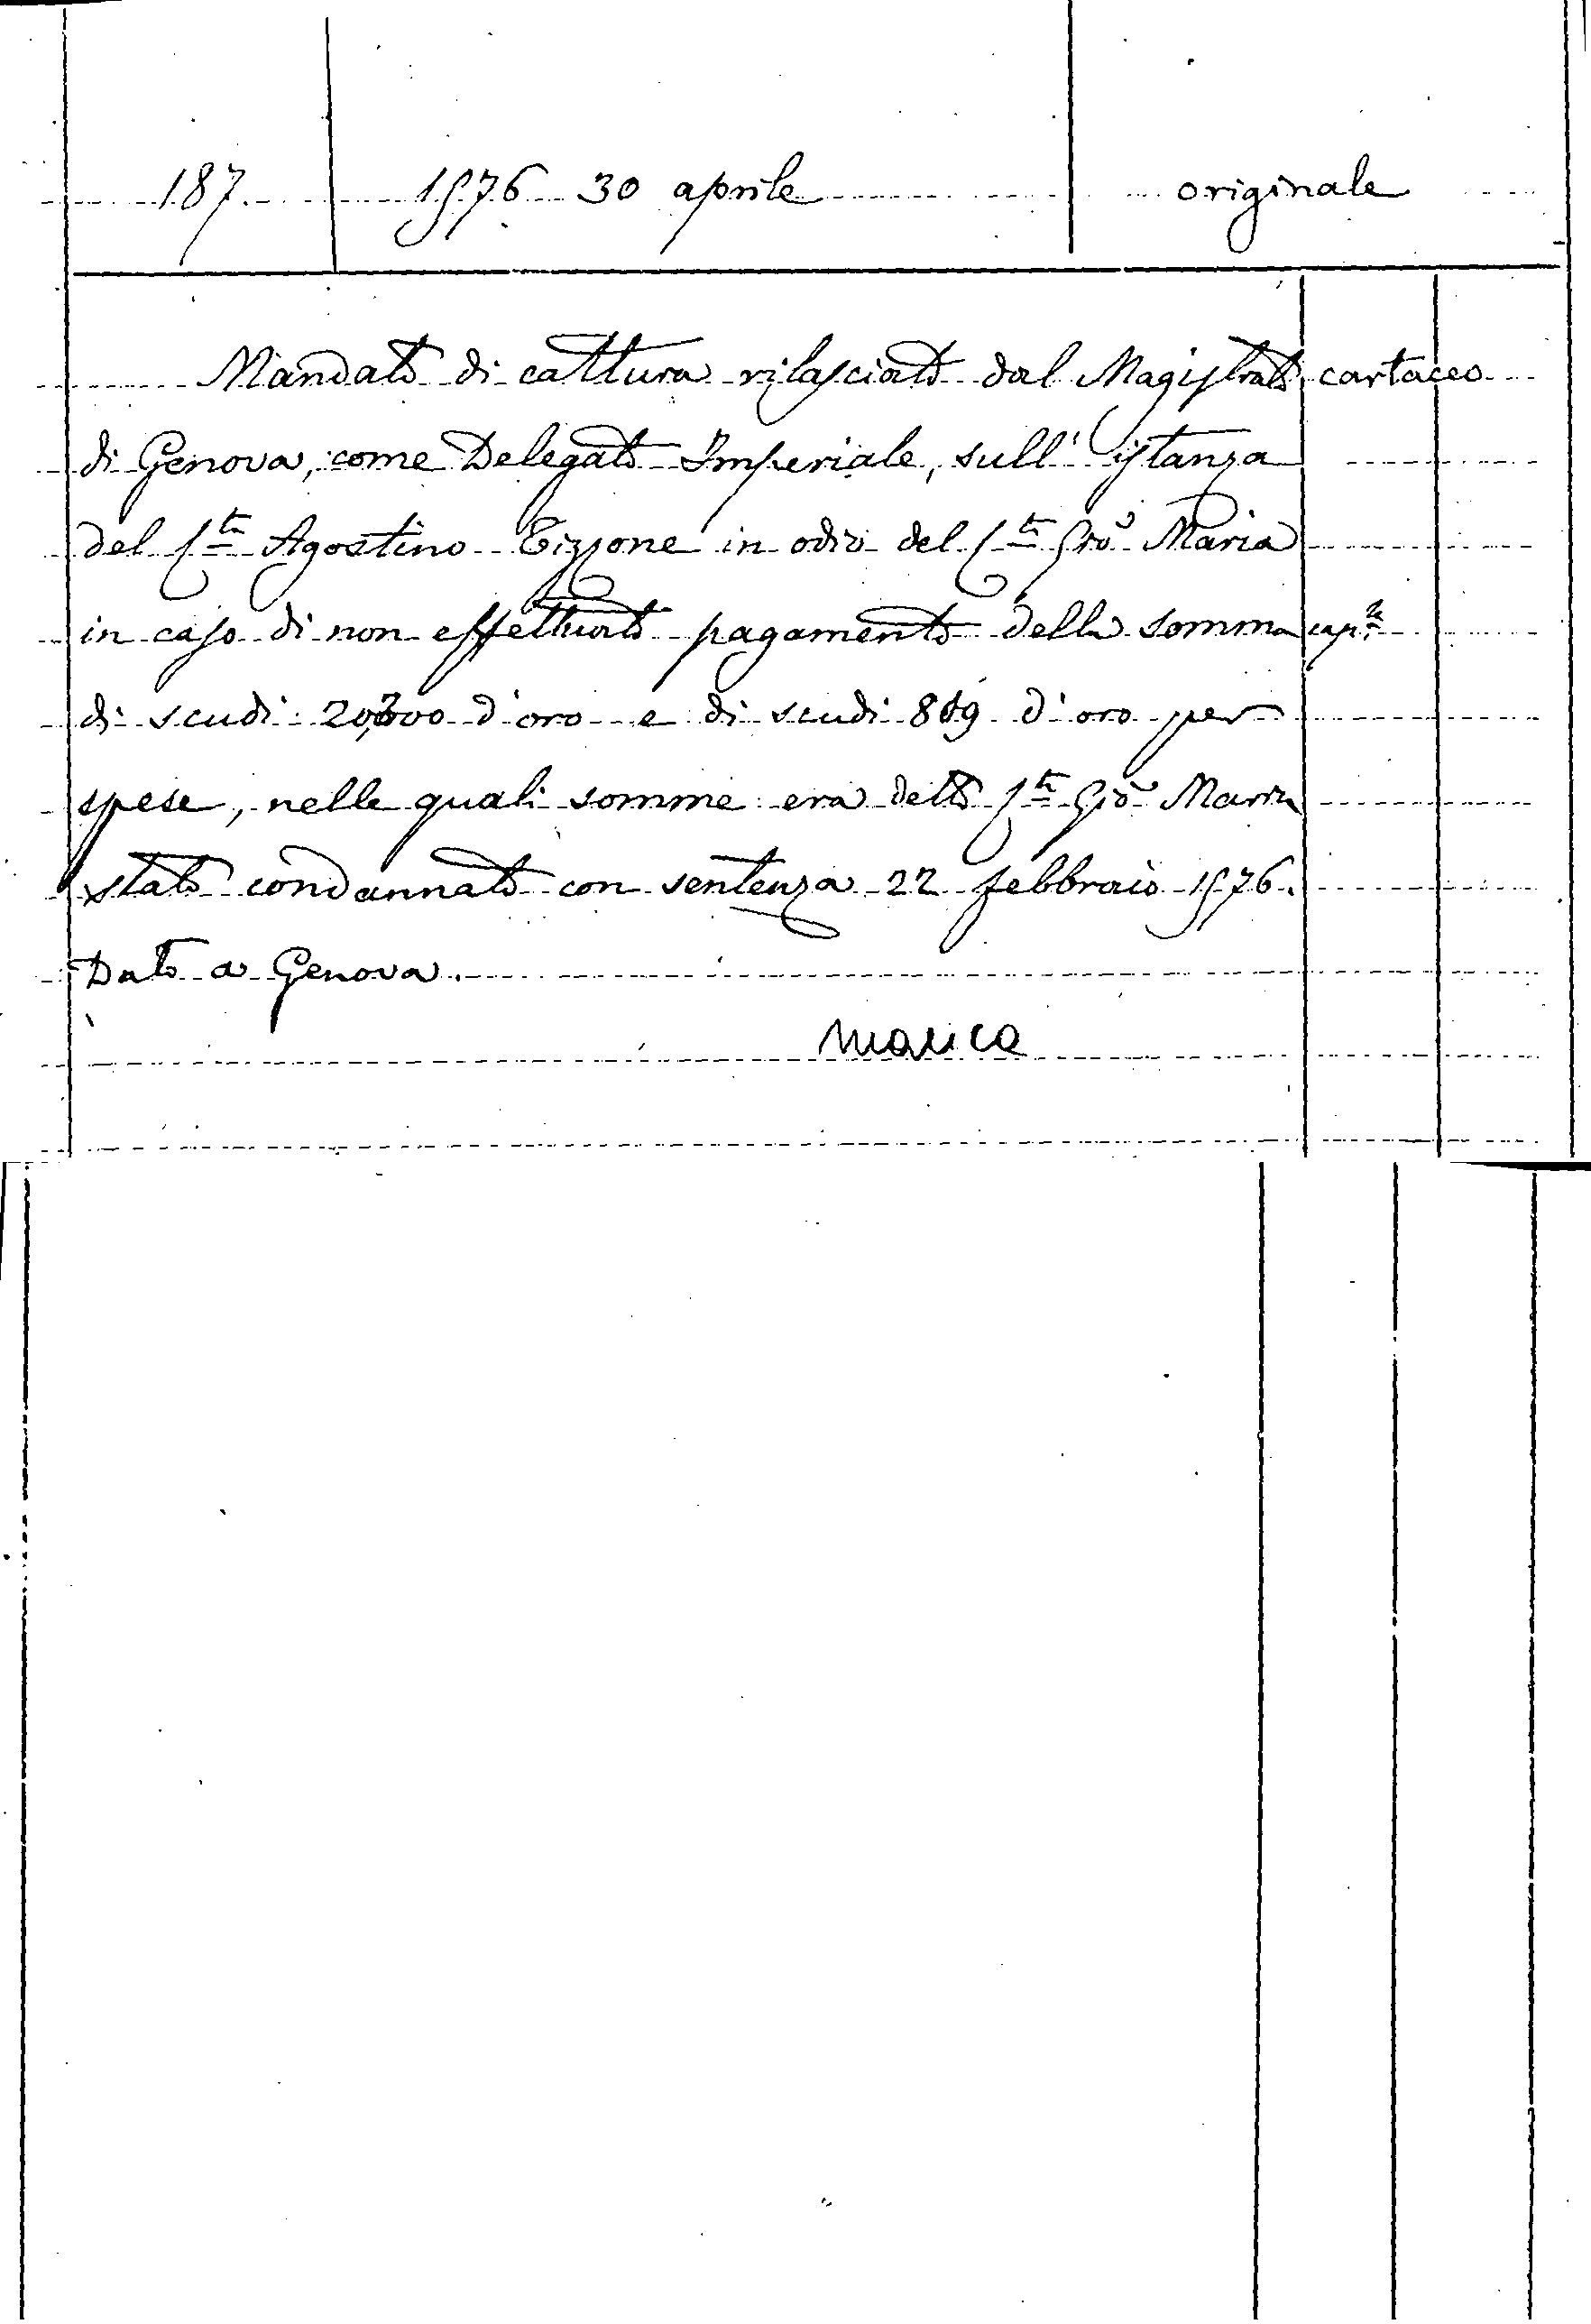 187. 1576 30 aprile originale
Mandato di cattura rilasciato dal Magistrato cartaceo
di Genova, come Delegato Imperiale, sull' istanza
del Cte Agostino Tizzone in odio del Cte Gio Maria
in caso di non effettuato pagamento della somma cap.le
di scudi 20,300 d'oro e di scudi 819 d'oro per
spese, nelle quali somme era detto Cte Gio Maria
stato condannato con sentenza 22 febbraio 1576.
Dato a Genova.
manca